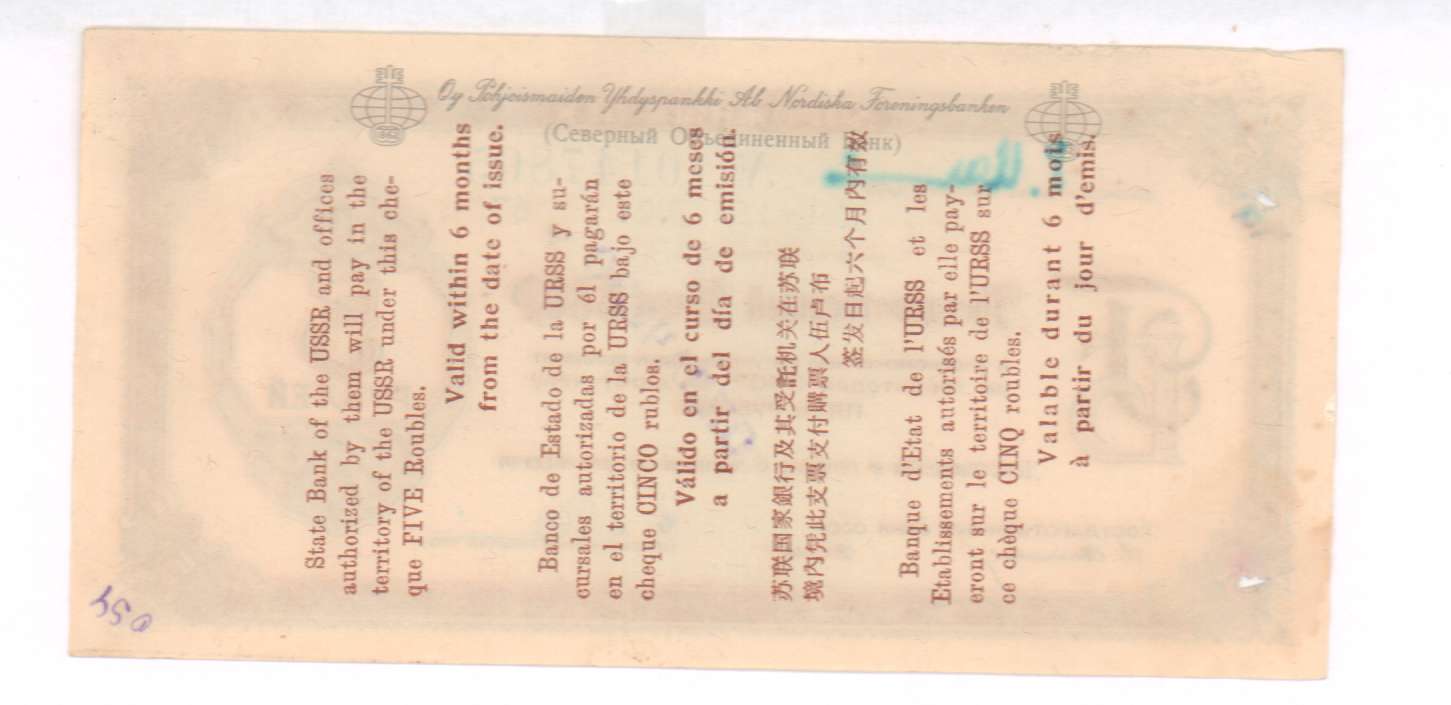 Oy Pohjoismaiden Yhdyspankki Ab Nordiska Föreningsbanken
(Северный Объединенный Банк)
State Bank of the USSR and offices
authorized by them will pay in the
territory of the USSR under this che-
que FIVE Roubles.
Valid within 6 months
from the date of issue.
Banco de Estado de la URSS y su-
cursales autorizadas por él pagarán
en el territorio de la URSS bajo este
cheque CINCO rublos.
Válido en el curso de 6 meses
a partir del día de emisión.
苏联国家銀行及其受託机关在苏联
境内凭此支票支付購票人伍卢布
签发日起六个月内有效
Banque d'Etat de l'URSS et les
Etablissements autorisés par elle pay-
eront sur le territoire de l'URSS sur
ce chèque CINQ roubles.
Valable durant 6 mois
à partir du jour d'emis.